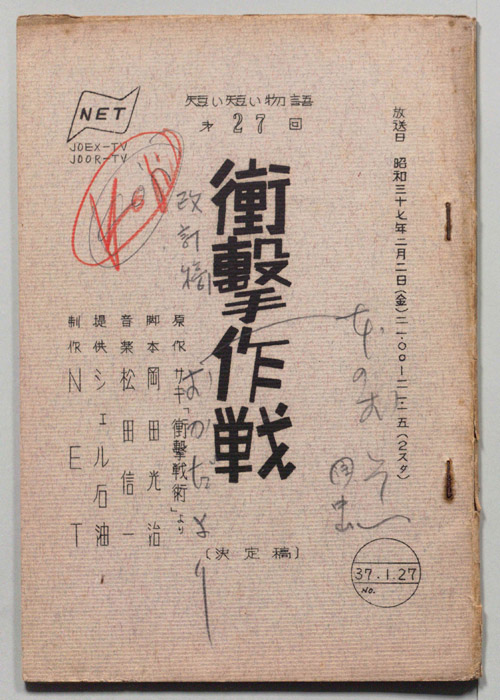 放送日 昭和三十七年二月二日(金)二一.〇〇ー二一.一五(2スタ)
短い短い物語
才27回
NET
JOEX-TV
JOOR-TV
改訂稿
衝撃作戦
原作 サキ「衝撃戦術」より
脚本 岡田光治
音楽 松田信一
提供 シェル石油
制作 NET
(決定稿)
37.1.27
NO.